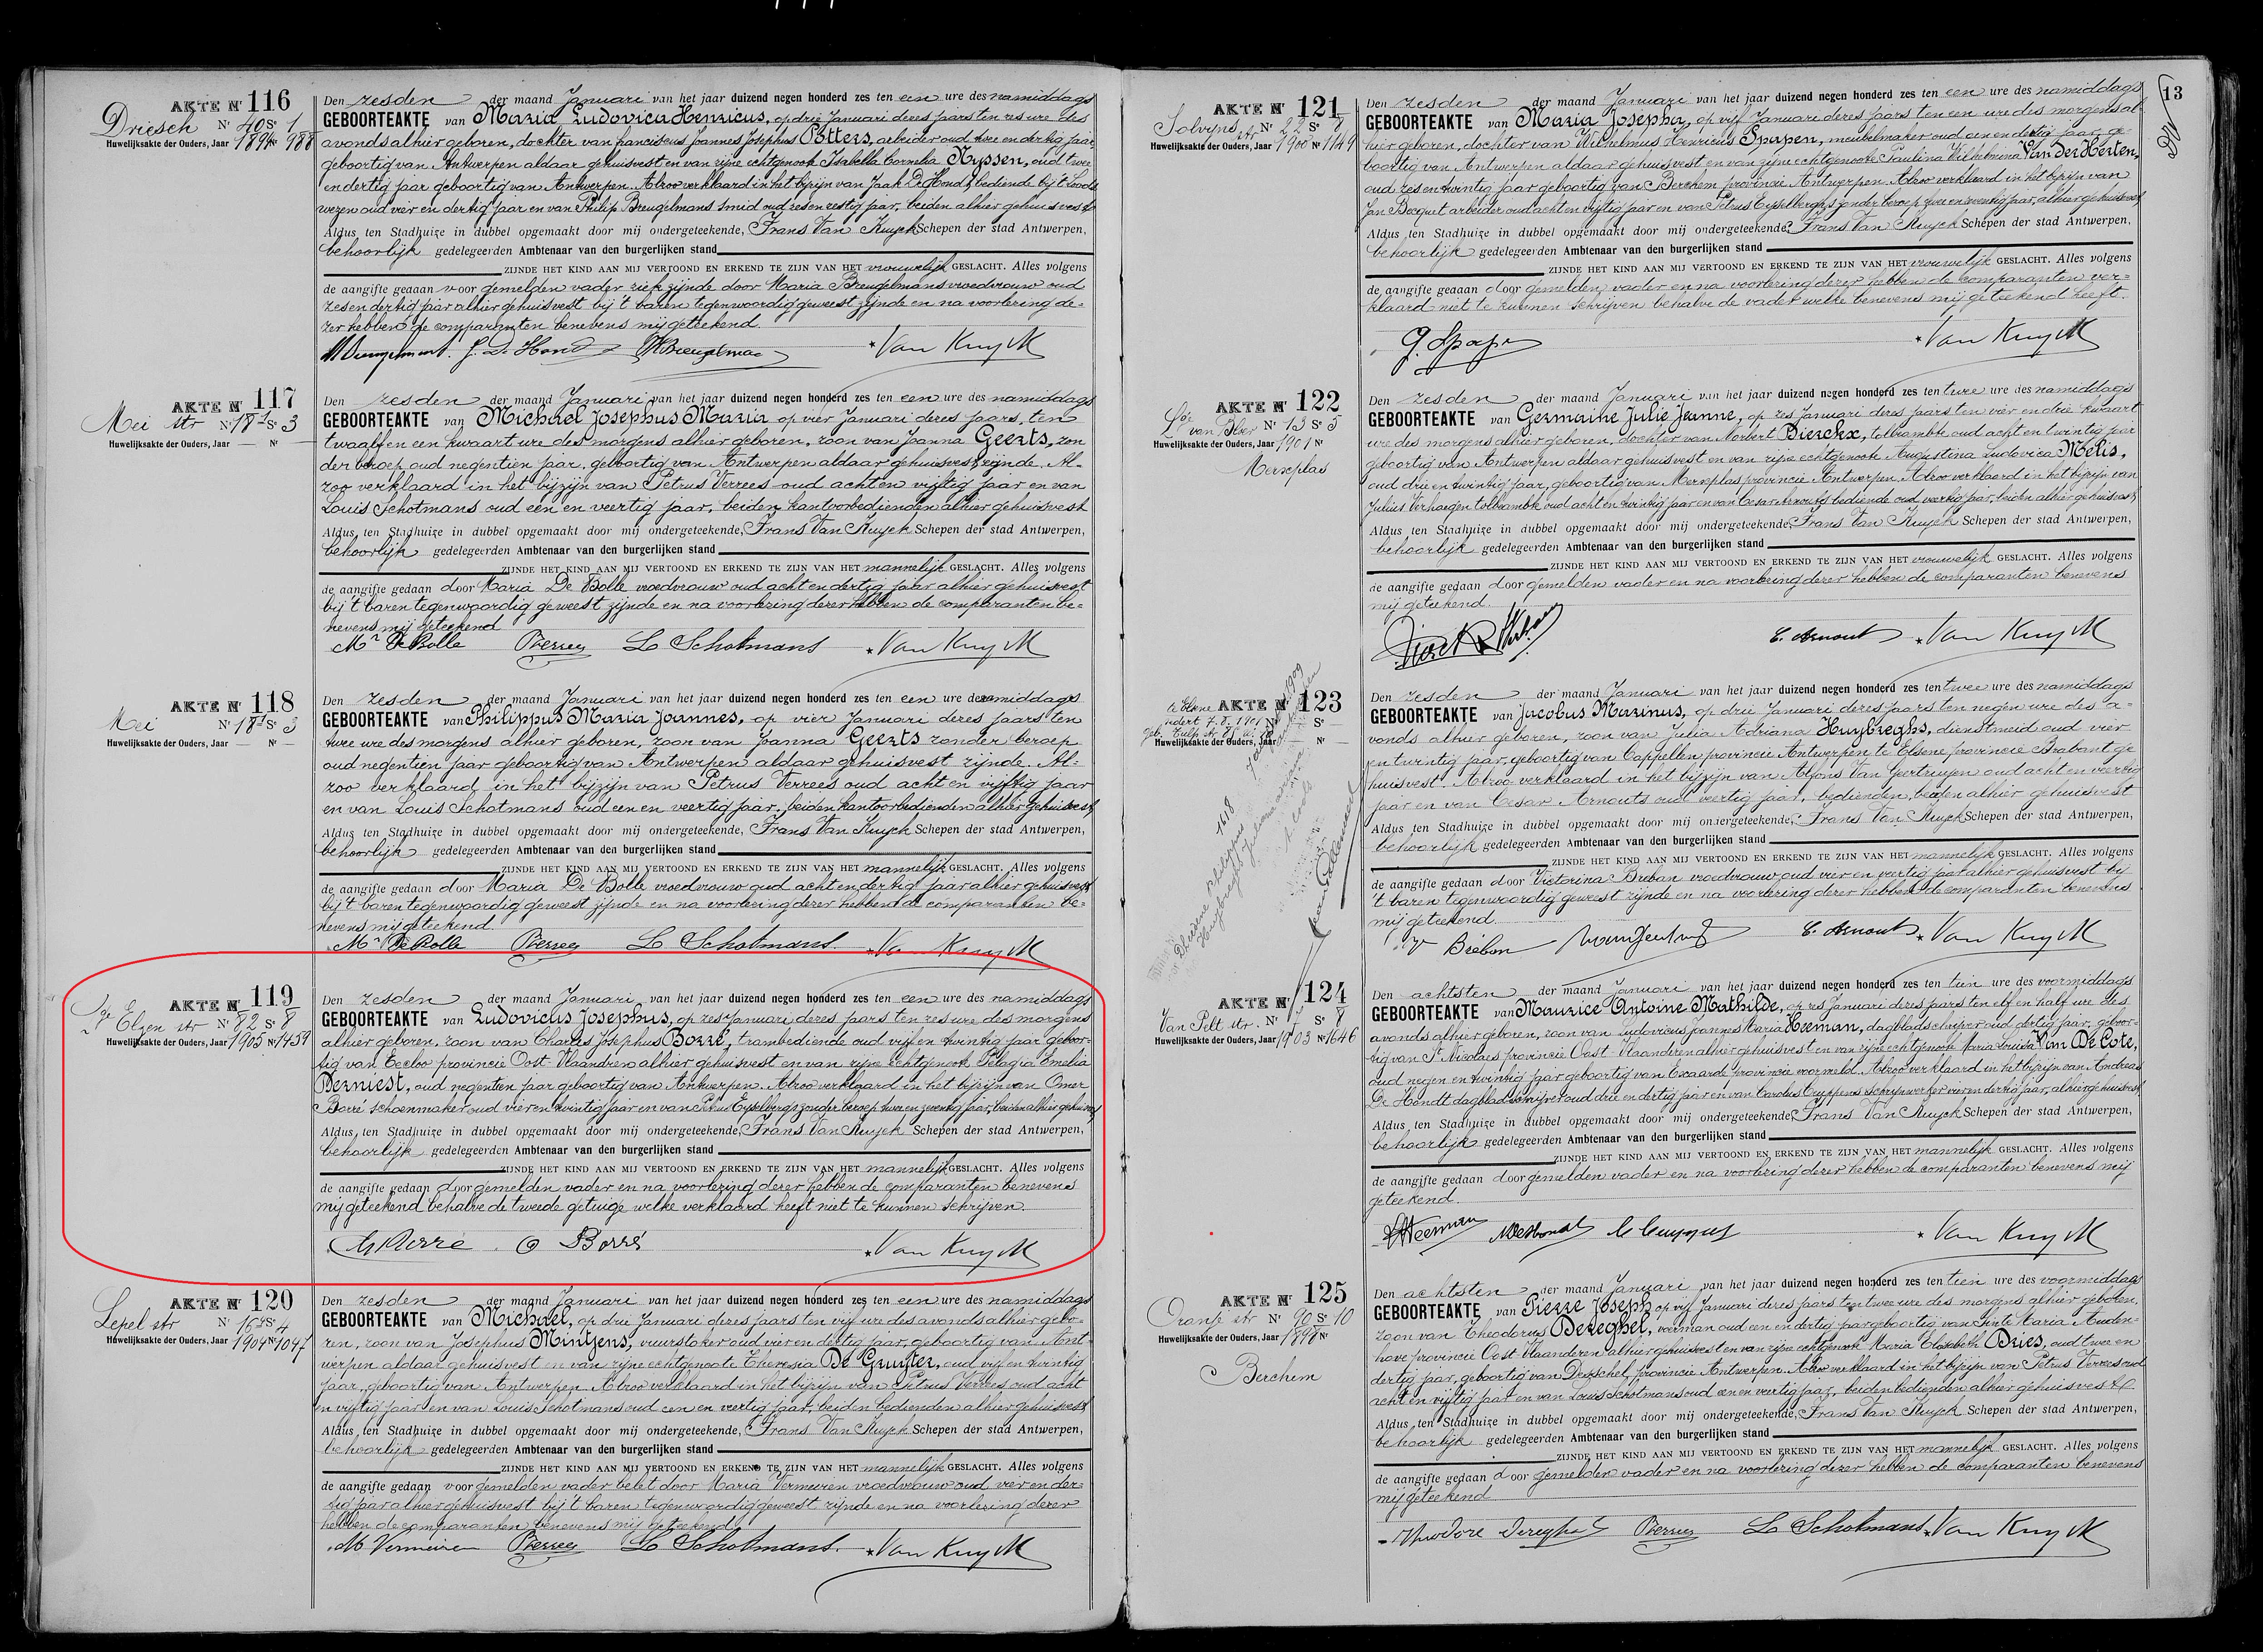 AKTE Nr 116
Driesch Nr 40 Sn 1
Huwelijksakte der Ouders, Jaar 1894 Nr 988
Den zesden der maand Januari van het jaar duizend negen honderd zes ten een ure des namiddags
GEBOORTEAKTE van Maria Ludovica Henricus, op drie Januari dezes jaars ten zes ure des
avonds alhier geboren, dochter van Franciscus Joannes Josephus Potters, arbeider oud twee en dertig jaar,
geboortig van Antwerpen aldaar gehuisvest en van zijne echtgenoote Isabella Cornelia Nyssen, oud twee
en dertig jaar geboortig van Antwerpen. Alzoo verklaard in het bijzijn van Jaak D'Hondt bediende bij 't Loods
wezen oud vier en dertig jaar en van Philip Breugelmans smid oud zes en zestig jaar, beiden alhier gehuisvest
Aldus ten Stadhuize in dubbel opgemaakt door mij ondergeteekende, Frans Van Kuyck Schepen der stad Antwerpen,
behoorlijk gedelegeerden Ambtenaar van den burgerlijken stand
ZIJNDE HET KIND AAN MIJ VERTOOND EN ERKEND TE ZIJN VAN HET vrouwelijk GESLACHT. Alles volgens
de aangifte gedaan voor gemelden vader ziek zijnde door Maria Breugelmans vroedvrouw oud
zes en dertig jaar alhier gehuisvest bij 't baren tegenwoordig geweest zijnde en na voorlezing de-
zer hebben de comparanten benevens mij geteekend.
J. D. Hond Breugelmans Van Kuyck
AKTE Nr 117
Mei str Nr 18 Sn 3
Huwelijksakte der Ouders, Jaar — Nr —
Den zesden der maand Januari van het jaar duizend negen honderd zes ten een ure des namiddags
GEBOORTEAKTE van Michael Josephus Maria op vier Januari dezes jaars, ten
twaalf en een kwaart ure des morgens alhier geboren, zoon van Joanna Geerts, zon
der beroep oud negentien jaar, geboortig van Antwerpen aldaar gehuisvest zijnde. Al-
zoo verklaard in het bijzijn van Petrus Verrees oud acht en vijftig jaar en van
Louis Schotmans oud een en veertig jaar, beiden kantoorbedienden alhier gehuisvest
Aldus ten Stadhuize in dubbel opgemaakt door mij ondergeteekende, Frans Van Kuyck Schepen der stad Antwerpen,
behoorlijk gedelegeerden Ambtenaar van den burgerlijken stand
ZIJNDE HET KIND AAN MIJ VERTOOND EN ERKEND TE ZIJN VAN HET mannelijk GESLACHT. Alles volgens
de aangifte gedaan door Maria De Bolle vroedvrouw oud acht en dertig jaar alhier gehuisvest
bij 't baren tegenwoordig geweest zijnde en na voorlezing dezer hebben de comparanten be-
nevens mij geteekend
Ma De Bolle PVerrees L Schotmans Van Kuyck
AKTE Nr 118
Mei Nr 18 Sn 3
Huwelijksakte der Ouders, Jaar — Nr —
Den zesden der maand Januari van het jaar duizend negen honderd zes ten een ure des namiddags
GEBOORTEAKTE van Philippus Maria Joannes, op vier Januari dezes jaars ten
twee ure des morgens alhier geboren, zoon van Joanna Geerts zonder beroep
oud negentien jaar geboortig van Antwerpen aldaar gehuisvest zijnde. Al-
zoo verklaard in het bijzijn van Petrus Verrees oud acht en vijftig jaar
en van Louis Schotmans oud een en veertig jaar, beiden kantoorbedienden alhier gehuisvest
Aldus ten Stadhuize in dubbel opgemaakt door mij ondergeteekende, Frans Van Kuyck Schepen der stad Antwerpen,
behoorlijk gedelegeerden Ambtenaar van den burgerlijken stand
ZIJNDE HET KIND AAN MIJ VERTOOND EN ERKEND TE ZIJN VAN HET mannelijk GESLACHT. Alles volgens
de aangifte gedaan door Maria De Bolle vroedvrouw oud acht en dertig jaar alhier gehuisvest
bij 't baren tegenwoordig geweest zijnde en na voorlezing dezer hebben de comparanten be-
nevens mij geteekend.
Ma De Bolle PVerrees L Schotmans Van Kuyck
AKTE Nr 119
Elzen str Nr 82 Sn 8
Huwelijksakte der Ouders, Jaar 1905 Nr 1459
Den zesden der maand Januari van het jaar duizend negen honderd zes ten een ure des namiddags
GEBOORTEAKTE van Ludovicus Josephus, op zes Januari dezes jaars ten zes ure des morgens
alhier geboren, zoon van Charles Josephus Borré, trambediende oud vijf en twintig jaar geboor-
tig van Eecloo provincie Oost-Vlaandren alhier gehuisvest en van zijne echtgenoote Pelagia Emelia
Derniest, oud negentien jaar geboortig van Antwerpen. Alzoo verklaard in het bijzijn van Omer
Borré schoenmaker oud vier en twintig jaar en van Petrus Eysselbergs zonder beroep twee en zeventig jaar, beiden alhier gehuisvest
Aldus ten Stadhuize in dubbel opgemaakt door mij ondergeteekende, Frans Van Kuyck Schepen der stad Antwerpen,
behoorlijk gedelegeerden Ambtenaar van den burgerlijken stand
ZIJNDE HET KIND AAN MIJ VERTOOND EN ERKEND TE ZIJN VAN HET mannelijk GESLACHT. Alles volgens
de aangifte gedaan door gemelden vader en na voorlezing dezer hebben de comparanten benevens
mij geteekend behalve de tweede getuige welke verklaard heeft niet te kunnen schrijven.
Ch Borré O Borré Van Kuyck
AKTE Nr 120
Lepel str Nr 16 Sn 4
Huwelijksakte der Ouders, Jaar 1904 Nr 1047
Den zesden der maand Januari van het jaar duizend negen honderd zes ten een ure des namiddags
GEBOORTEAKTE van Michael, op drie Januari dezes jaars ten vijf ure des avonds alhier gebo-
ren, zoon van Josephus Mintjens, vuurstoker oud vier en dertig jaar, geboortig van Ant-
werpen aldaar gehuisvest en van zijne echtgenoote Theresia De Gruyter, oud vijf en twintig
jaar, geboortig van Antwerpen. Alzoo verklaard in het bijzijn van Petrus Verrees oud acht
en vijftig jaar en van Louis Schotmans oud een en veertig jaar, beiden bedienden alhier gehuisvest
Aldus ten Stadhuize in dubbel opgemaakt door mij ondergeteekende, Frans Van Kuyck Schepen der stad Antwerpen,
behoorlijk gedelegeerden Ambtenaar van den burgerlijken stand
ZIJNDE HET KIND AAN MIJ VERTOOND EN ERKEND TE ZIJN VAN HET mannelijk GESLACHT. Alles volgens
de aangifte gedaan voor gemelden vader belet door Maria Vermeiren vroedvrouw oud vier en der-
tig jaar alhier gehuisvest bij 't baren tegenwoordig geweest zijnde en na voorlezing dezer
hebben de comparanten benevens mij geteekend
M Vermeiren PVerrees L Schotmans. Van Kuyck
13
AKTE Nr 121
Solvyns str Nr 22 Sn 8
Huwelijksakte der Ouders, Jaar 1900 Nr 1149
Den zesden der maand Januari van het jaar duizend negen honderd zes ten een ure des namiddags
GEBOORTEAKTE van Maria Josepha, op vijf Januari dezes jaars ten een ure des morgens al
hier geboren, dochter van Wilhelmus Henricus Spapen, meubelmaker oud een en dertig jaar, ge-
boortig van Antwerpen aldaar gehuisvest en van zijne echtgenoote Paulina Wilhelmina Van Der Herten,
oud zes en twintig jaar geboortig van Berchem provincie Antwerpen. Alzoo verklaard in het bijzijn van
Jan Becquet arbeider oud acht en vijftig jaar en van Petrus Eysselberghs zonder beroep twee en zeventig jaar, alhier gehuisvest
Aldus ten Stadhuize in dubbel opgemaakt door mij ondergeteekende, Frans Van Kuyck Schepen der stad Antwerpen,
behoorlijk gedelegeerden Ambtenaar van den burgerlijken stand
ZIJNDE HET KIND AAN MIJ VERTOOND EN ERKEND TE ZIJN VAN HET vrouwelijk GESLACHT. Alles volgens
de aangifte gedaan door gemelden vader en na voorlezing dezer hebben de comparanten ver-
klaard niet te kunnen schrijven behalve de vader welke benevens mij geteekend heeft.
G. Spapen Van Kuyck
AKTE Nr 122
van Bber Nr 13 Sn 5
Huwelijksakte der Ouders, Jaar 1901 Nr
Merxplas
Den zesden der maand Januari van het jaar duizend negen honderd zes ten twee ure des namiddags
GEBOORTEAKTE van Germaine Julie Jeanne, op zes Januari dezes jaars ten vier en drie kwaart
ure des morgens alhier geboren, dochter van Norbert Dierckx, tolbeambte oud acht en twintig jaar
geboortig van Antwerpen aldaar gehuisvest en van zijne echtgenoote Augustina Ludovica Melis,
oud drie en twintig jaar, geboortig van Merxplas provincie Antwerpen. Alzoo verklaard in het bijzijn van
Julius Verhaegen tolbeambte oud acht en twintig jaar en van Cesar Arnouts bediende oud veertig jaar, beiden alhier gehuisvest
Aldus ten Stadhuize in dubbel opgemaakt door mij ondergeteekende, Frans Van Kuyck Schepen der stad Antwerpen,
behoorlijk gedelegeerden Ambtenaar van den burgerlijken stand
ZIJNDE HET KIND AAN MIJ VERTOOND EN ERKEND TE ZIJN VAN HET vrouwelijk GESLACHT. Alles volgens
de aangifte gedaan door gemelden vader en na voorlezing dezer hebben de comparanten benevens
mij geteekend.
C. Arnouts Van Kuyck
AKTE Nr 123
Huwelijksakte der Ouders, Jaar — Nr —
Den zesden der maand Januari van het jaar duizend negen honderd zes ten twee ure des namiddags
GEBOORTEAKTE van Jacobus Marinus, op drie Januari dezes jaars ten negen ure des a-
vonds alhier geboren, zoon van Julia Adriana Huybreghs, dienstmeid oud vier
en twintig jaar, geboortig van Cappellen provincie Antwerpen te Elsene provincie Brabant ge
huisvest. Alzoo verklaard in het bijzijn van Alfons Van Geertruyen oud acht en veertig
jaar en van Cesar Arnouts oud veertig jaar, bedienden, beiden alhier gehuisvest
Aldus ten Stadhuize in dubbel opgemaakt door mij ondergeteekende, Frans Van Kuyck Schepen der stad Antwerpen,
behoorlijk gedelegeerden Ambtenaar van den burgerlijken stand
ZIJNDE HET KIND AAN MIJ VERTOOND EN ERKEND TE ZIJN VAN HET mannelijk GESLACHT. Alles volgens
de aangifte gedaan door Victorina Breban vroedvrouw oud vier en veertig jaar alhier gehuisvest bij
't baren tegenwoordig geweest zijnde en na voorlezing dezer hebben de comparanten benevens
mij geteekend.
V Brébon C. Arnouts Van Kuyck
AKTE Nr 124
Van Pelt str. Nr Sn 8
Huwelijksakte der Ouders, Jaar 1903 Nr 1646
Den achtsten der maand Januari van het jaar duizend negen honderd zes ten tien ure des voormiddags
GEBOORTEAKTE van Maurice Antoine Mathilde, op zes Januari dezes jaars ten elf en half ure des
avonds alhier geboren, zoon van Ludovicus Joannes Maria Heeman, dagbladschrijver oud dertig jaar, geboor-
tig van St Nicolaes provincie Oost-Vlaanderen alhier gehuisvest en van zijne echtgenoote Maria Louisa Van De Cote,
oud negen en twintig jaar geboortig van Exaarde provincie voormeld. Alzoo verklaard in het bijzijn van Andreas
De Hondt dagbladschrijver oud drie en dertig jaar en van Carolus Cuyppens schrijnwerker vier en dertig jaar, alhier gehuisvest
Aldus ten Stadhuize in dubbel opgemaakt door mij ondergeteekende, Frans Van Kuyck Schepen der stad Antwerpen,
behoorlijk gedelegeerden Ambtenaar van den burgerlijken stand
ZIJNDE HET KIND AAN MIJ VERTOOND EN ERKEND TE ZIJN VAN HET mannelijk GESLACHT. Alles volgens
de aangifte gedaan door gemelden vader en na voorlezing dezer hebben de comparanten benevens mij
geteekend.
Heeman Van Kuyck
AKTE Nr 125
Oranje str Nr 90 Sn 10
Huwelijksakte der Ouders, Jaar 1898 Nr
Berchem
Den achtsten der maand Januari van het jaar duizend negen honderd zes ten tien ure des voormiddags
GEBOORTEAKTE van Pierre Joseph op vijf Januari dezes jaars ten twee ure des morgens alhier geboren,
zoon van Theodorus Dereghel, voerman oud een en dertig jaar geboortig van Sinte Maria Auden-
hove provincie Oost Vlaanderen alhier gehuisvest en van zijne echtgenoote Maria Elisabeth Dries, oud twee en
dertig jaar, geboortig van Desschel, provincie Antwerpen. Alzoo verklaard in het bijzijn van Petrus Verrees oud
acht en vijftig jaar en van Louis Schotmans oud een en veertig jaar, beiden bedienden alhier gehuisvest
Aldus ten Stadhuize in dubbel opgemaakt door mij ondergeteekende, Frans Van Kuyck Schepen der stad Antwerpen,
behoorlijk gedelegeerden Ambtenaar van den burgerlijken stand
ZIJNDE HET KIND AAN MIJ VERTOOND EN ERKEND TE ZIJN VAN HET mannelijk GESLACHT. Alles volgens
de aangifte gedaan door gemelden vader en na voorlezing dezer hebben de comparanten benevens
mij geteekend
Theodore Dereghel PVerrees L Schotmans Van Kuyck